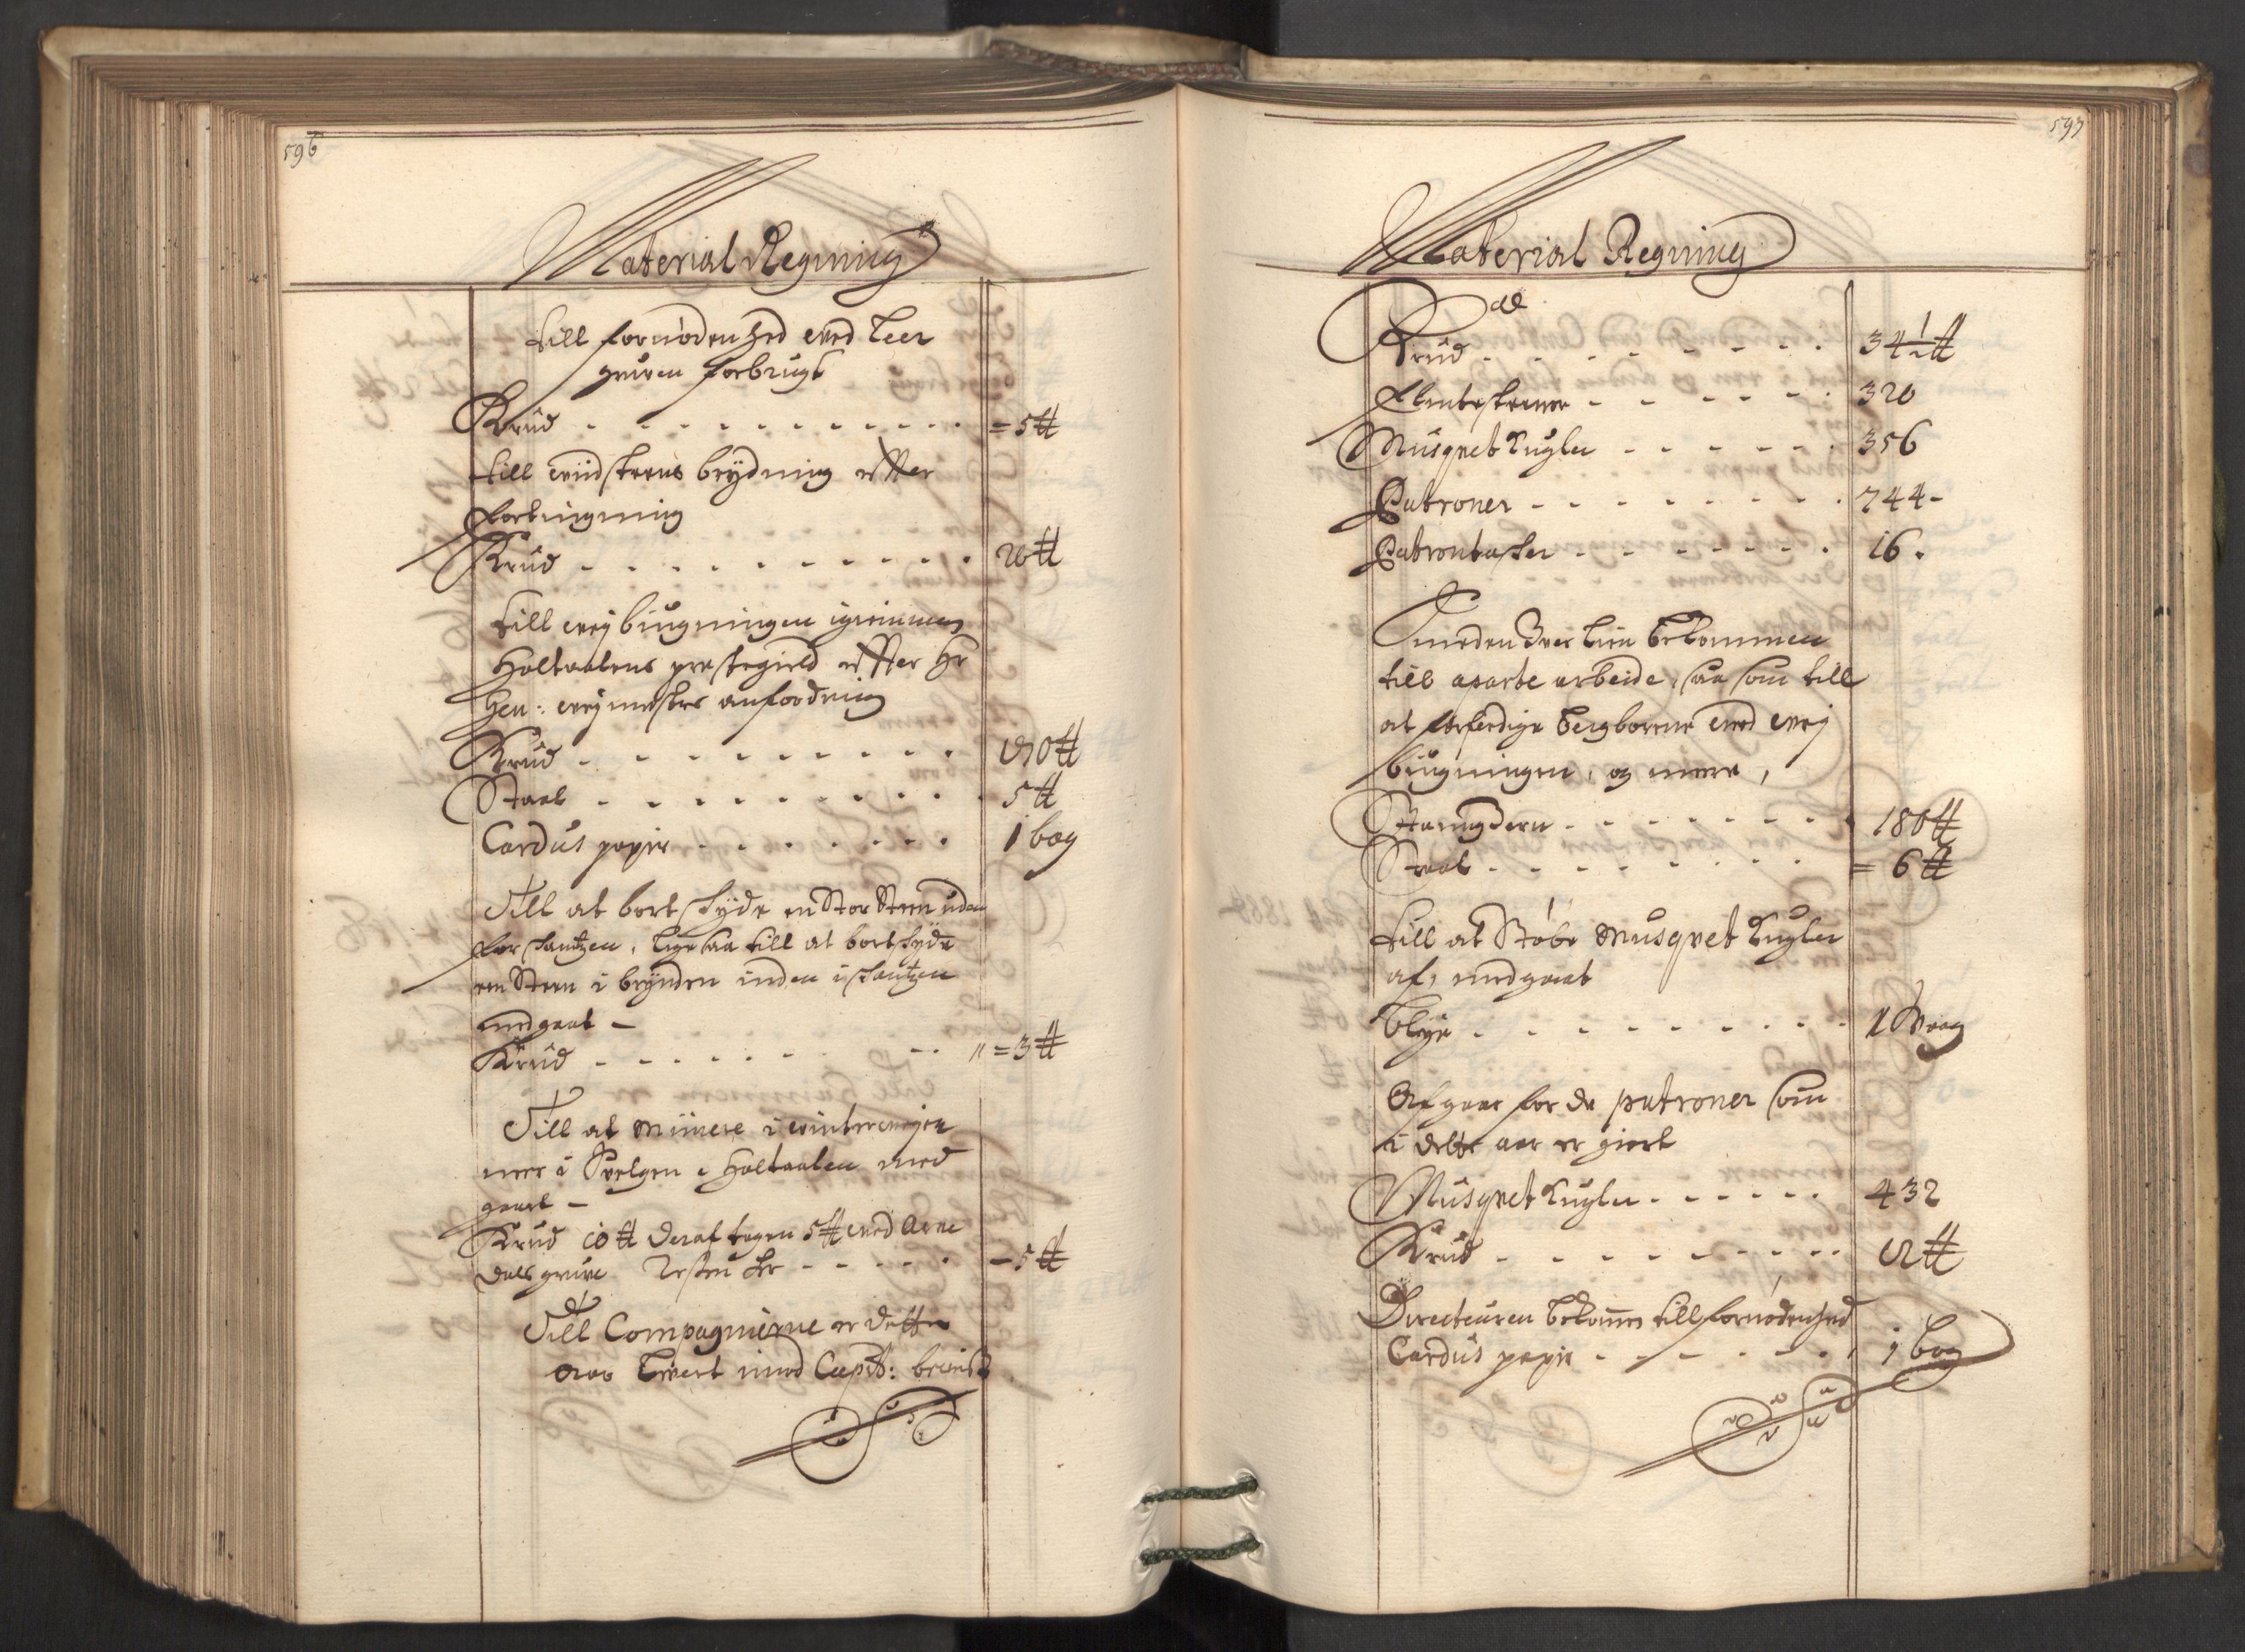 596
Material Regning
till fornødenhed wed Leer
gruven forbrugt
Krud - - - - - - - - - - = 5 ℔
till wiidsteens brydning effter
fortingning
Krud - - - - - - - - - - 20 ℔
till weybiugningen igiennem
Holtaalens prestegield effter Hr
Gen: weymesters anfordring
Krud - - - - - - - - - ℔
Staal - - - - - - - - - - 5 ℔
Cardus papir - - - - - - - 1 bog
Till at bortskyde en Stor Steen uden
for skantzen, ligesaa till at bortskyde
een Steen i brynden inden i skantzen
medgaaet -
Krud - - - - - - - - - " = 3 ℔
Till at miinere i winterweyen
neer i Svelgen i Holtaalen med
gaaet -
Krud 10 ℔ deraf tagen 5 ℔ wed Arne
dals gruve Resten her - - - - - - 5 ℔
Till Compagnierne er dette
aar lewert imod Capit: beviis
597
Material Regning
Krud - - - - - - - - 34½ ℔
Flintesteene - - - - - - 320
Musqvet Kugler - - - - - 356
Patroner - - - - - - - - 744 -
Patrontasker - - - - - - 16 .
Smeden Iver Lien bekommen
till aparte arbeide, saa som till
at forferdige bergborene wed wey
biugningen, og mere,
Stangiern - - - - - - - - 180 ℔
Staal - - - - - - - = 6 ℔
till at Støbe Musqvet Kugler
af, medgaaet
Blye - - - - - - - - - 1 Waag
Afgaar for de patroner som
i dette aar er giort
Musqvet Kugler - - - - - - 432
Krud - - - - - - - - - ℔
Directeuren bekommen till fornødenhed
Cardus papir - - - - - - 1 bog